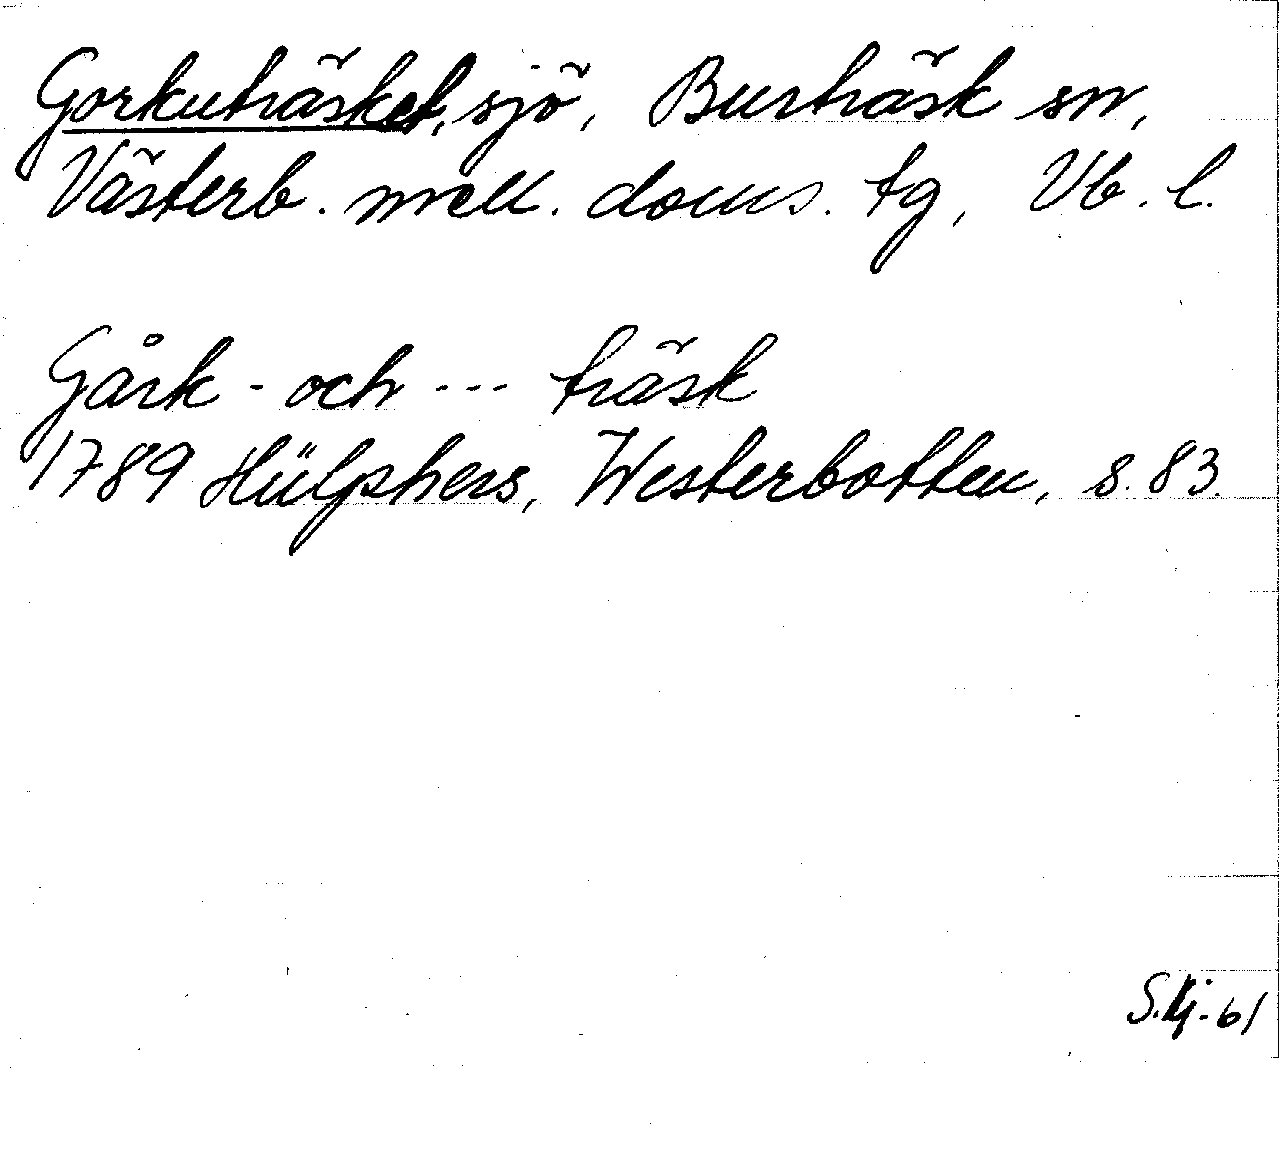 Gorkuträsket, sjö, Burträsk sn,
Västerb. mell. doms. tg, Vb. l.
Gårk - och --- träsk
1789 Hülphers, Westerbotten, s. 83.
S.Lj-61